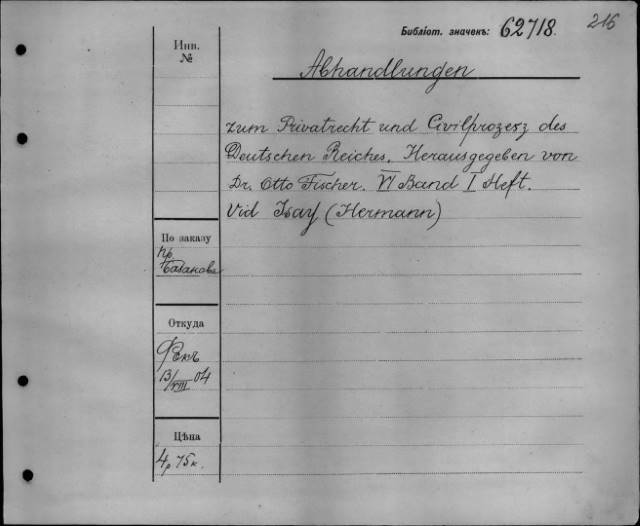 Библіот. значекъ: 62718. 216
Инв. №
Abhandlungen
zum Privatrecht und Civilprozesz des
Deutschen Reiches. Herausgegeben von
Dr. Otto Fischer. VI Band I Heft.
Vid Isay (Hermann)
По заказу
пр.
Откуда
Фекъ
13/VIII 04
Цѣна
4р 75к.